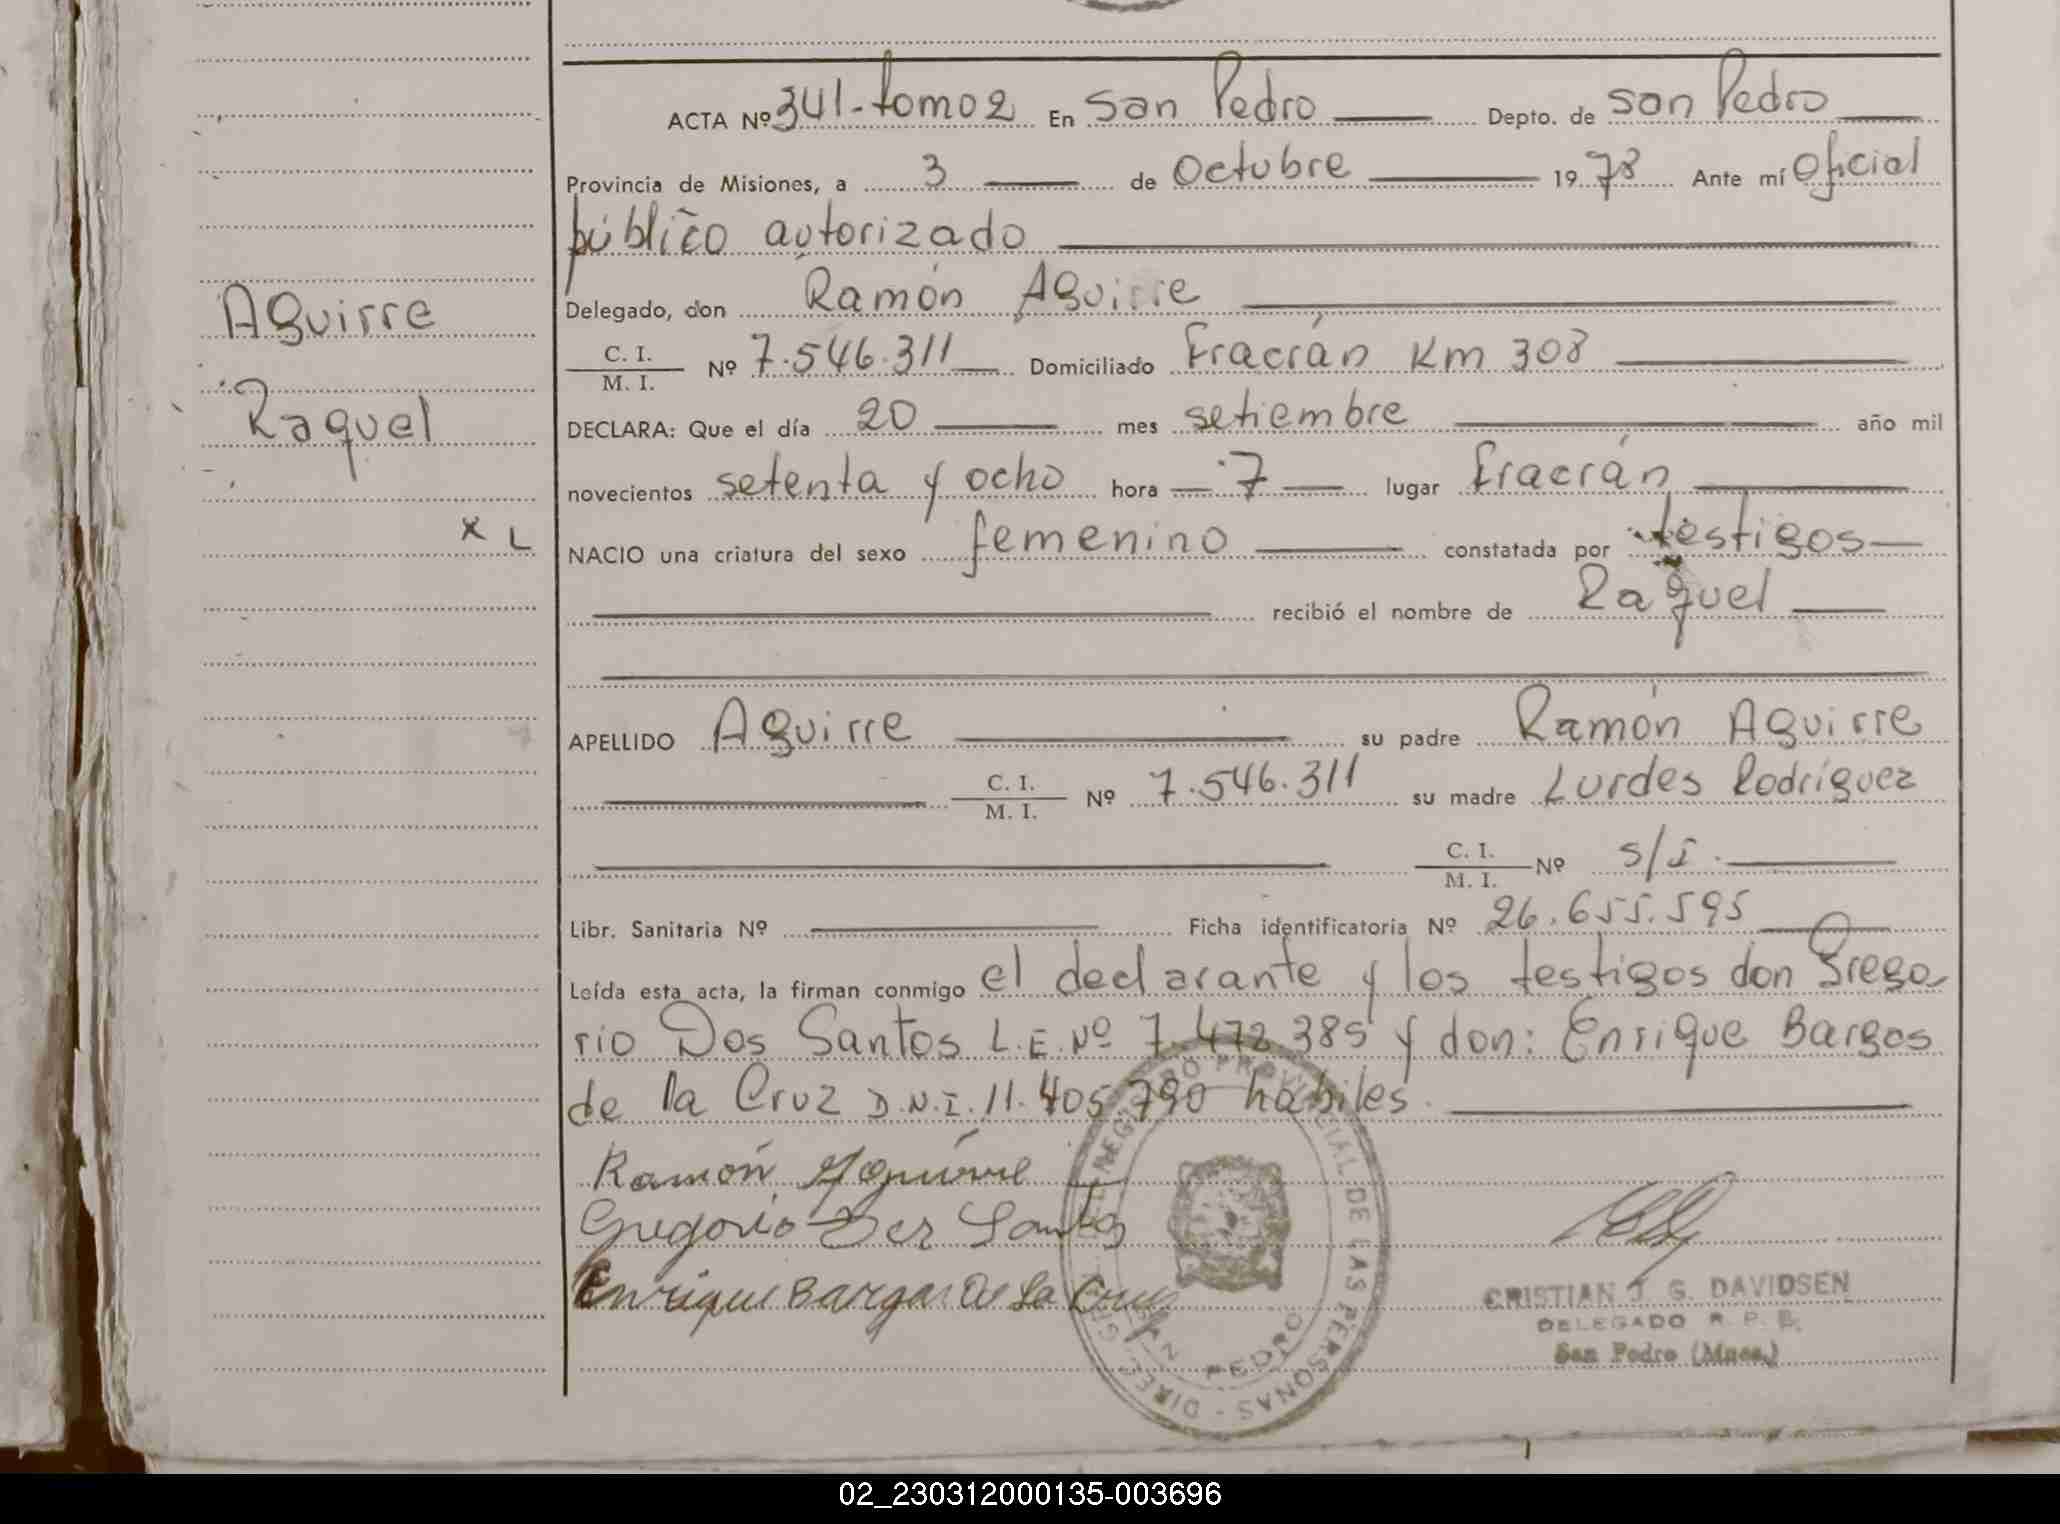 ACTA Nº 341-tomo2 En San Pedro Depto. de San Pedro
Provincia de Misiones, a 3 de Octubre 1978 Ante mí Oficial
público autorizado
Delegado, don Ramón Aguirre
C. I. / M. I. Nº 7.546.311 Domiciliado Fracrán Km 308
DECLARA: Que el día 20 mes setiembre año mil
novecientos setenta y ocho hora 7 lugar Fracrán
NACIO una criatura del sexo femenino constatada por testigos
recibió el nombre de Raquel
APELLIDO Aguirre su padre Ramón Aguirre
C. I. / M. I. Nº 7.546.311 su madre Lurdes Rodríguez
C. I. / M. I. Nº s/I.
Libr. Sanitaria Nº Ficha identificatoria Nº 26.655.595
Leída esta acta, la firman conmigo el declarante y los testigos don Grego
rio Dos Santos L.E. Nº 7.472.385 y don: Enrique Bargas
de la Cruz D.N.I. 11.405.790 habiles.
Aguirre
Raquel
x L
Ramón Aguirre
Gregorio Dos Santos
Enrique Bargas De La Cruz
REGISTRO PROVINCIAL DE LAS PERSONAS - DIREC. GRAL.
SAN PEDRO
CRISTIAN J. G. DAVIDSEN
DELEGADO R. P. P.
San Pedro (Mnes.)
02_230312000135-003696